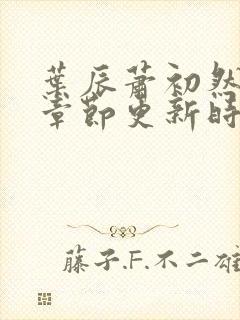 葉辰蕭初然
章節更新時
藤子.F.不二雄